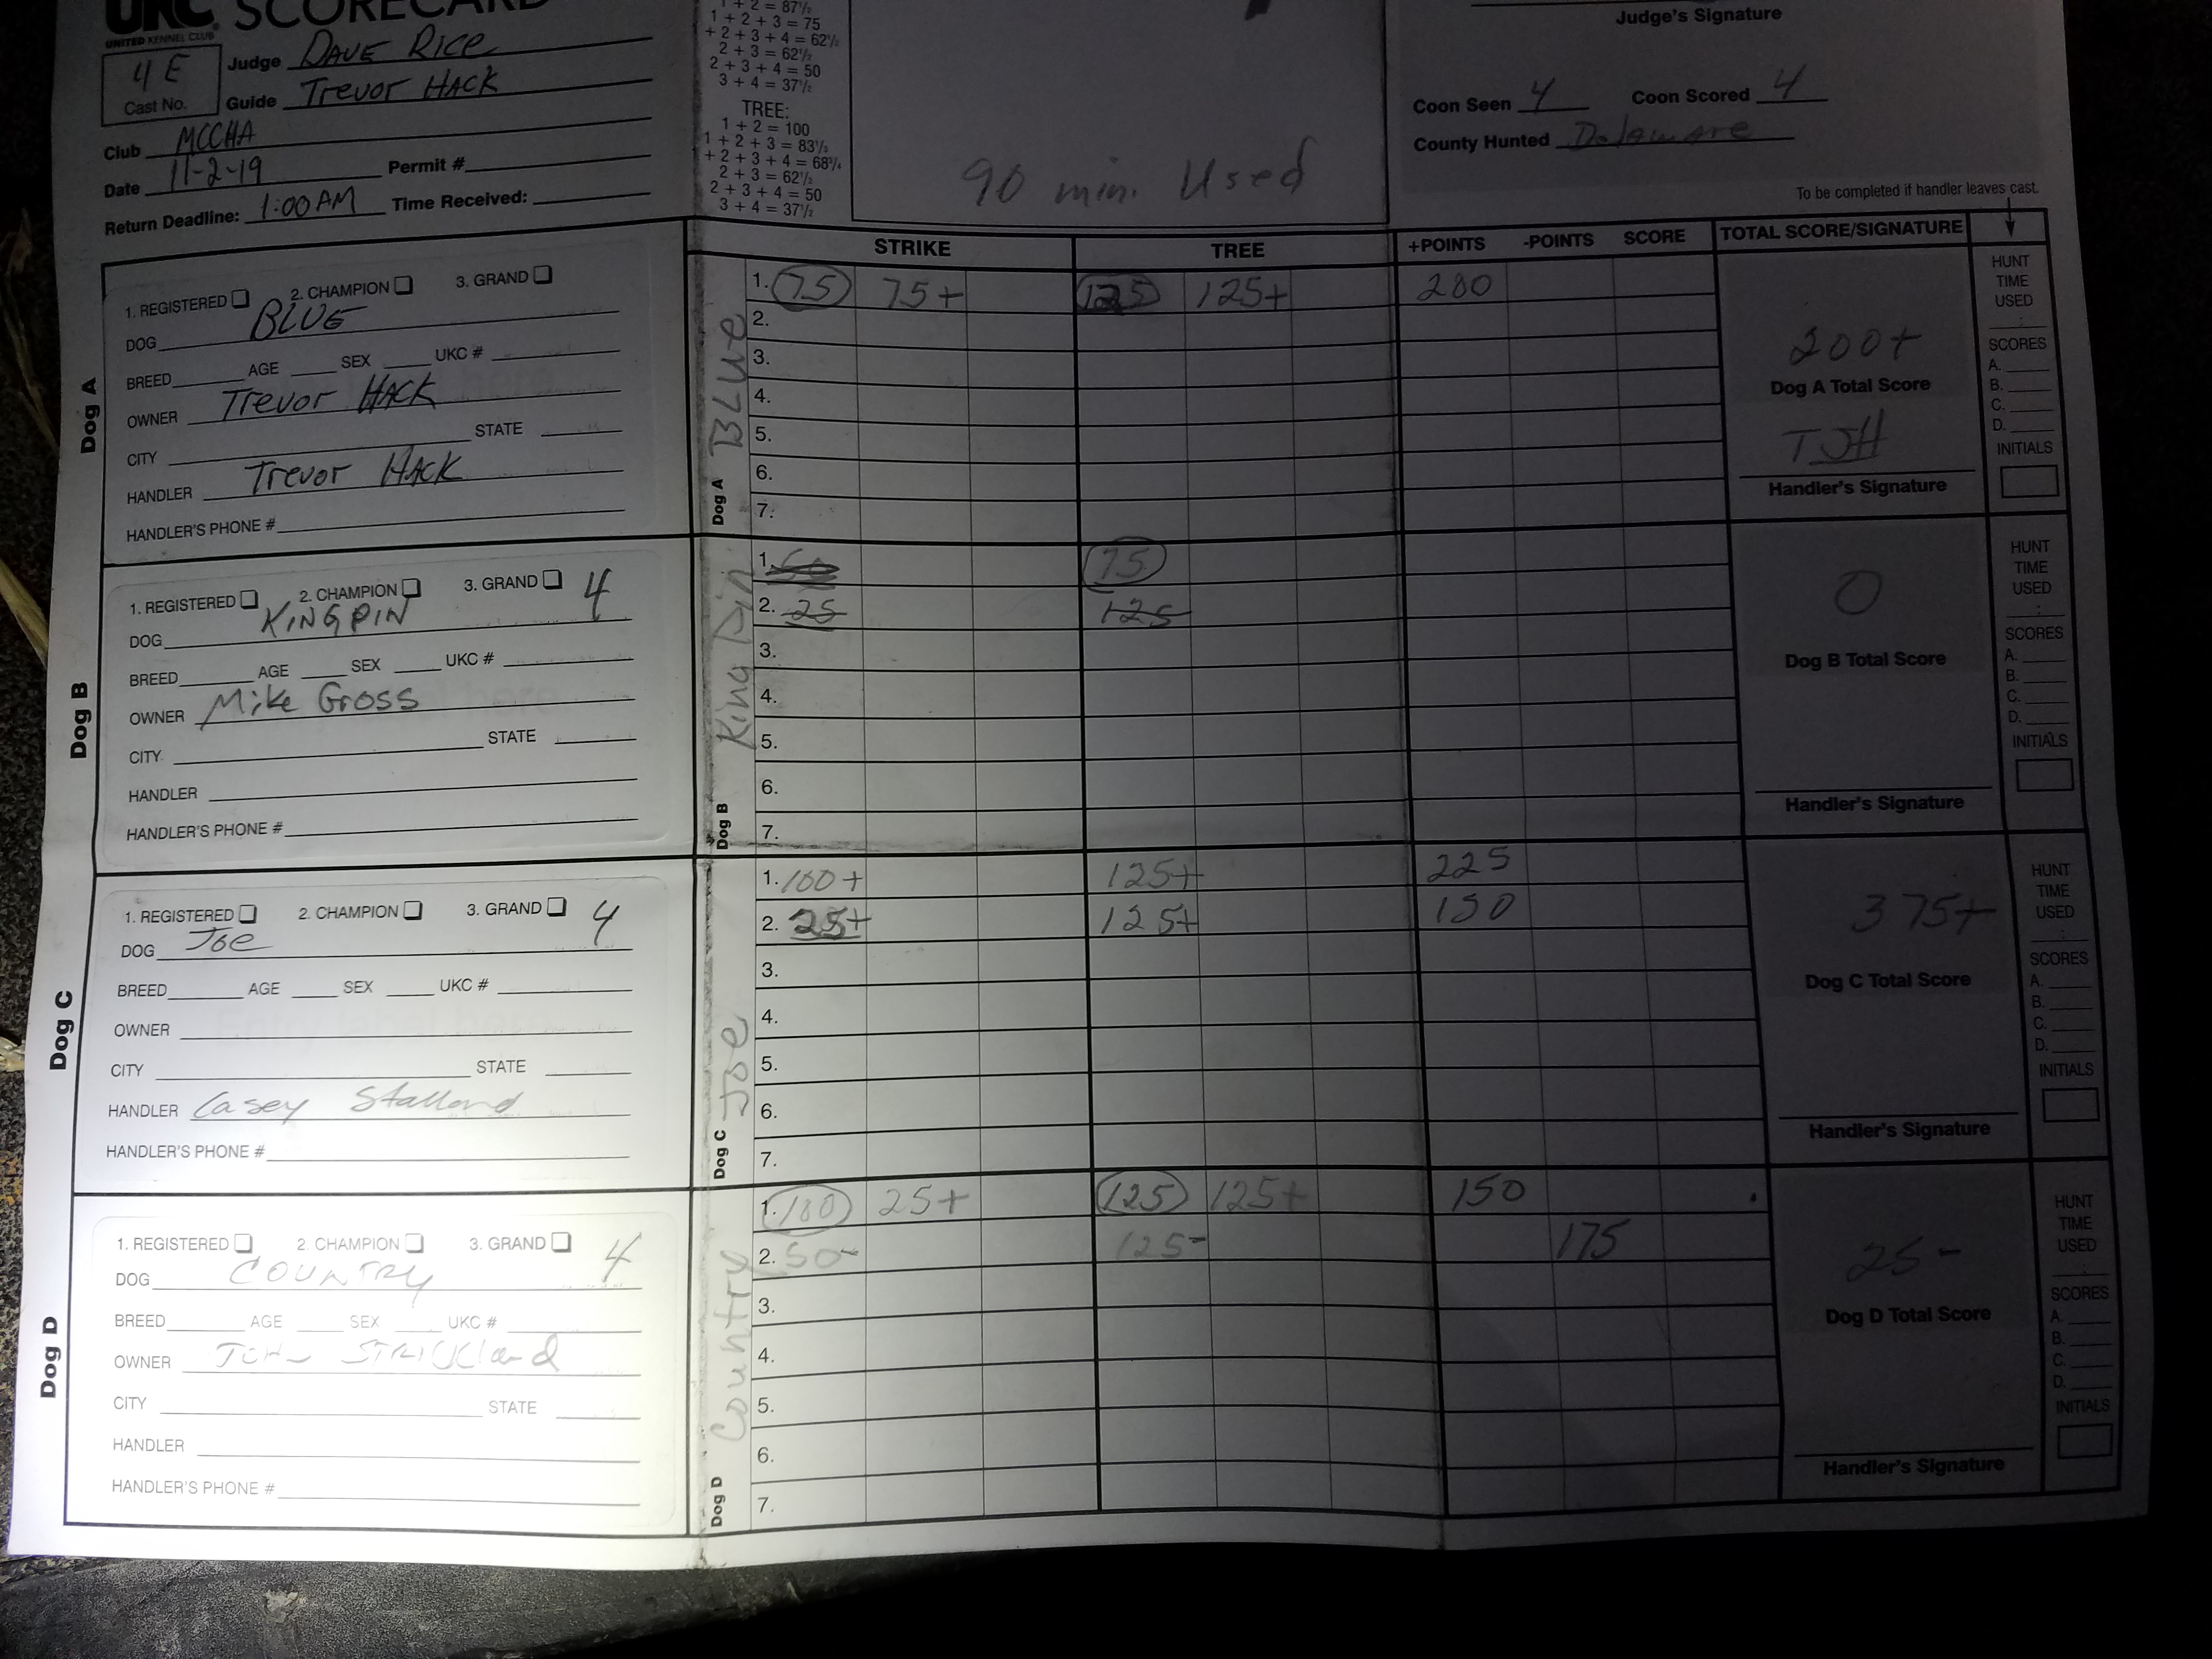 UKC® SCORECARD
UNITED KENNEL CLUB
4E
Cast No.
Judge DAVE RICE
Guide Trevor HACK
Club MCCHA
Date 11-2-19 Permit #
Return Deadline: 1:00 AM Time Received:
1 + 2 = 87½
1 + 2 + 3 = 75
+ 2 + 3 + 4 = 62½
2 + 3 = 62½
2 + 3 + 4 = 50
3 + 4 = 37½
TREE:
1 + 2 = 100
1 + 2 + 3 = 83⅓
+ 2 + 3 + 4 = 68¾
2 + 3 = 62½
2 + 3 + 4 = 50
3 + 4 = 37½
90 min. Used
Judge's Signature
Coon Seen 4 Coon Scored 4
County Hunted Delaware
To be completed if handler leaves cast.
STRIKE TREE +POINTS -POINTS SCORE TOTAL SCORE/SIGNATURE
Dog A
1. REGISTERED 2. CHAMPION 3. GRAND
DOG BLUE
BREED AGE SEX UKC #
OWNER Trevor HACK
CITY STATE
HANDLER Trevor HACK
HANDLER'S PHONE #
Dog A BLUE
1. 75 75+ 125 125+ 200
2.
3.
4.
5.
6.
7.
200+
Dog A Total Score
TJH
Handler's Signature
HUNT
TIME
USED
:
SCORES
A.
B.
C.
D.
INITIALS
Dog B
1. REGISTERED 2. CHAMPION 3. GRAND 4
DOG KINGPIN
BREED AGE SEX UKC #
OWNER Mike Gross
CITY STATE
HANDLER
HANDLER'S PHONE #
Dog B King Pin
1. 75
2. 25 125
3.
4.
5.
6.
7.
0
Dog B Total Score
Handler's Signature
HUNT
TIME
USED
:
SCORES
A.
B.
C.
D.
INITIALS
Dog C
1. REGISTERED 2. CHAMPION 3. GRAND 4
DOG Joe
BREED AGE SEX UKC #
OWNER
CITY STATE
HANDLER Casey
HANDLER'S PHONE #
Dog C Joe
1. 100+ 125+ 225
2. 25+ 125+ 150
3.
4.
5.
6.
7.
375+
Dog C Total Score
Handler's Signature
HUNT
TIME
USED
:
SCORES
A.
B.
C.
D.
INITIALS
Dog D
1. REGISTERED 2. CHAMPION 3. GRAND 4
DOG COUNTRY
BREED AGE SEX UKC #
OWNER JOHN STRICKland
CITY STATE
HANDLER
HANDLER'S PHONE #
Dog D Country
1. 100 25+ 125 125+ 150
2. 50- 125- 175
3.
4.
5.
6.
7.
25-
Dog D Total Score
Handler's Signature
HUNT
TIME
USED
:
SCORES
A.
B.
C.
D.
INITIALS